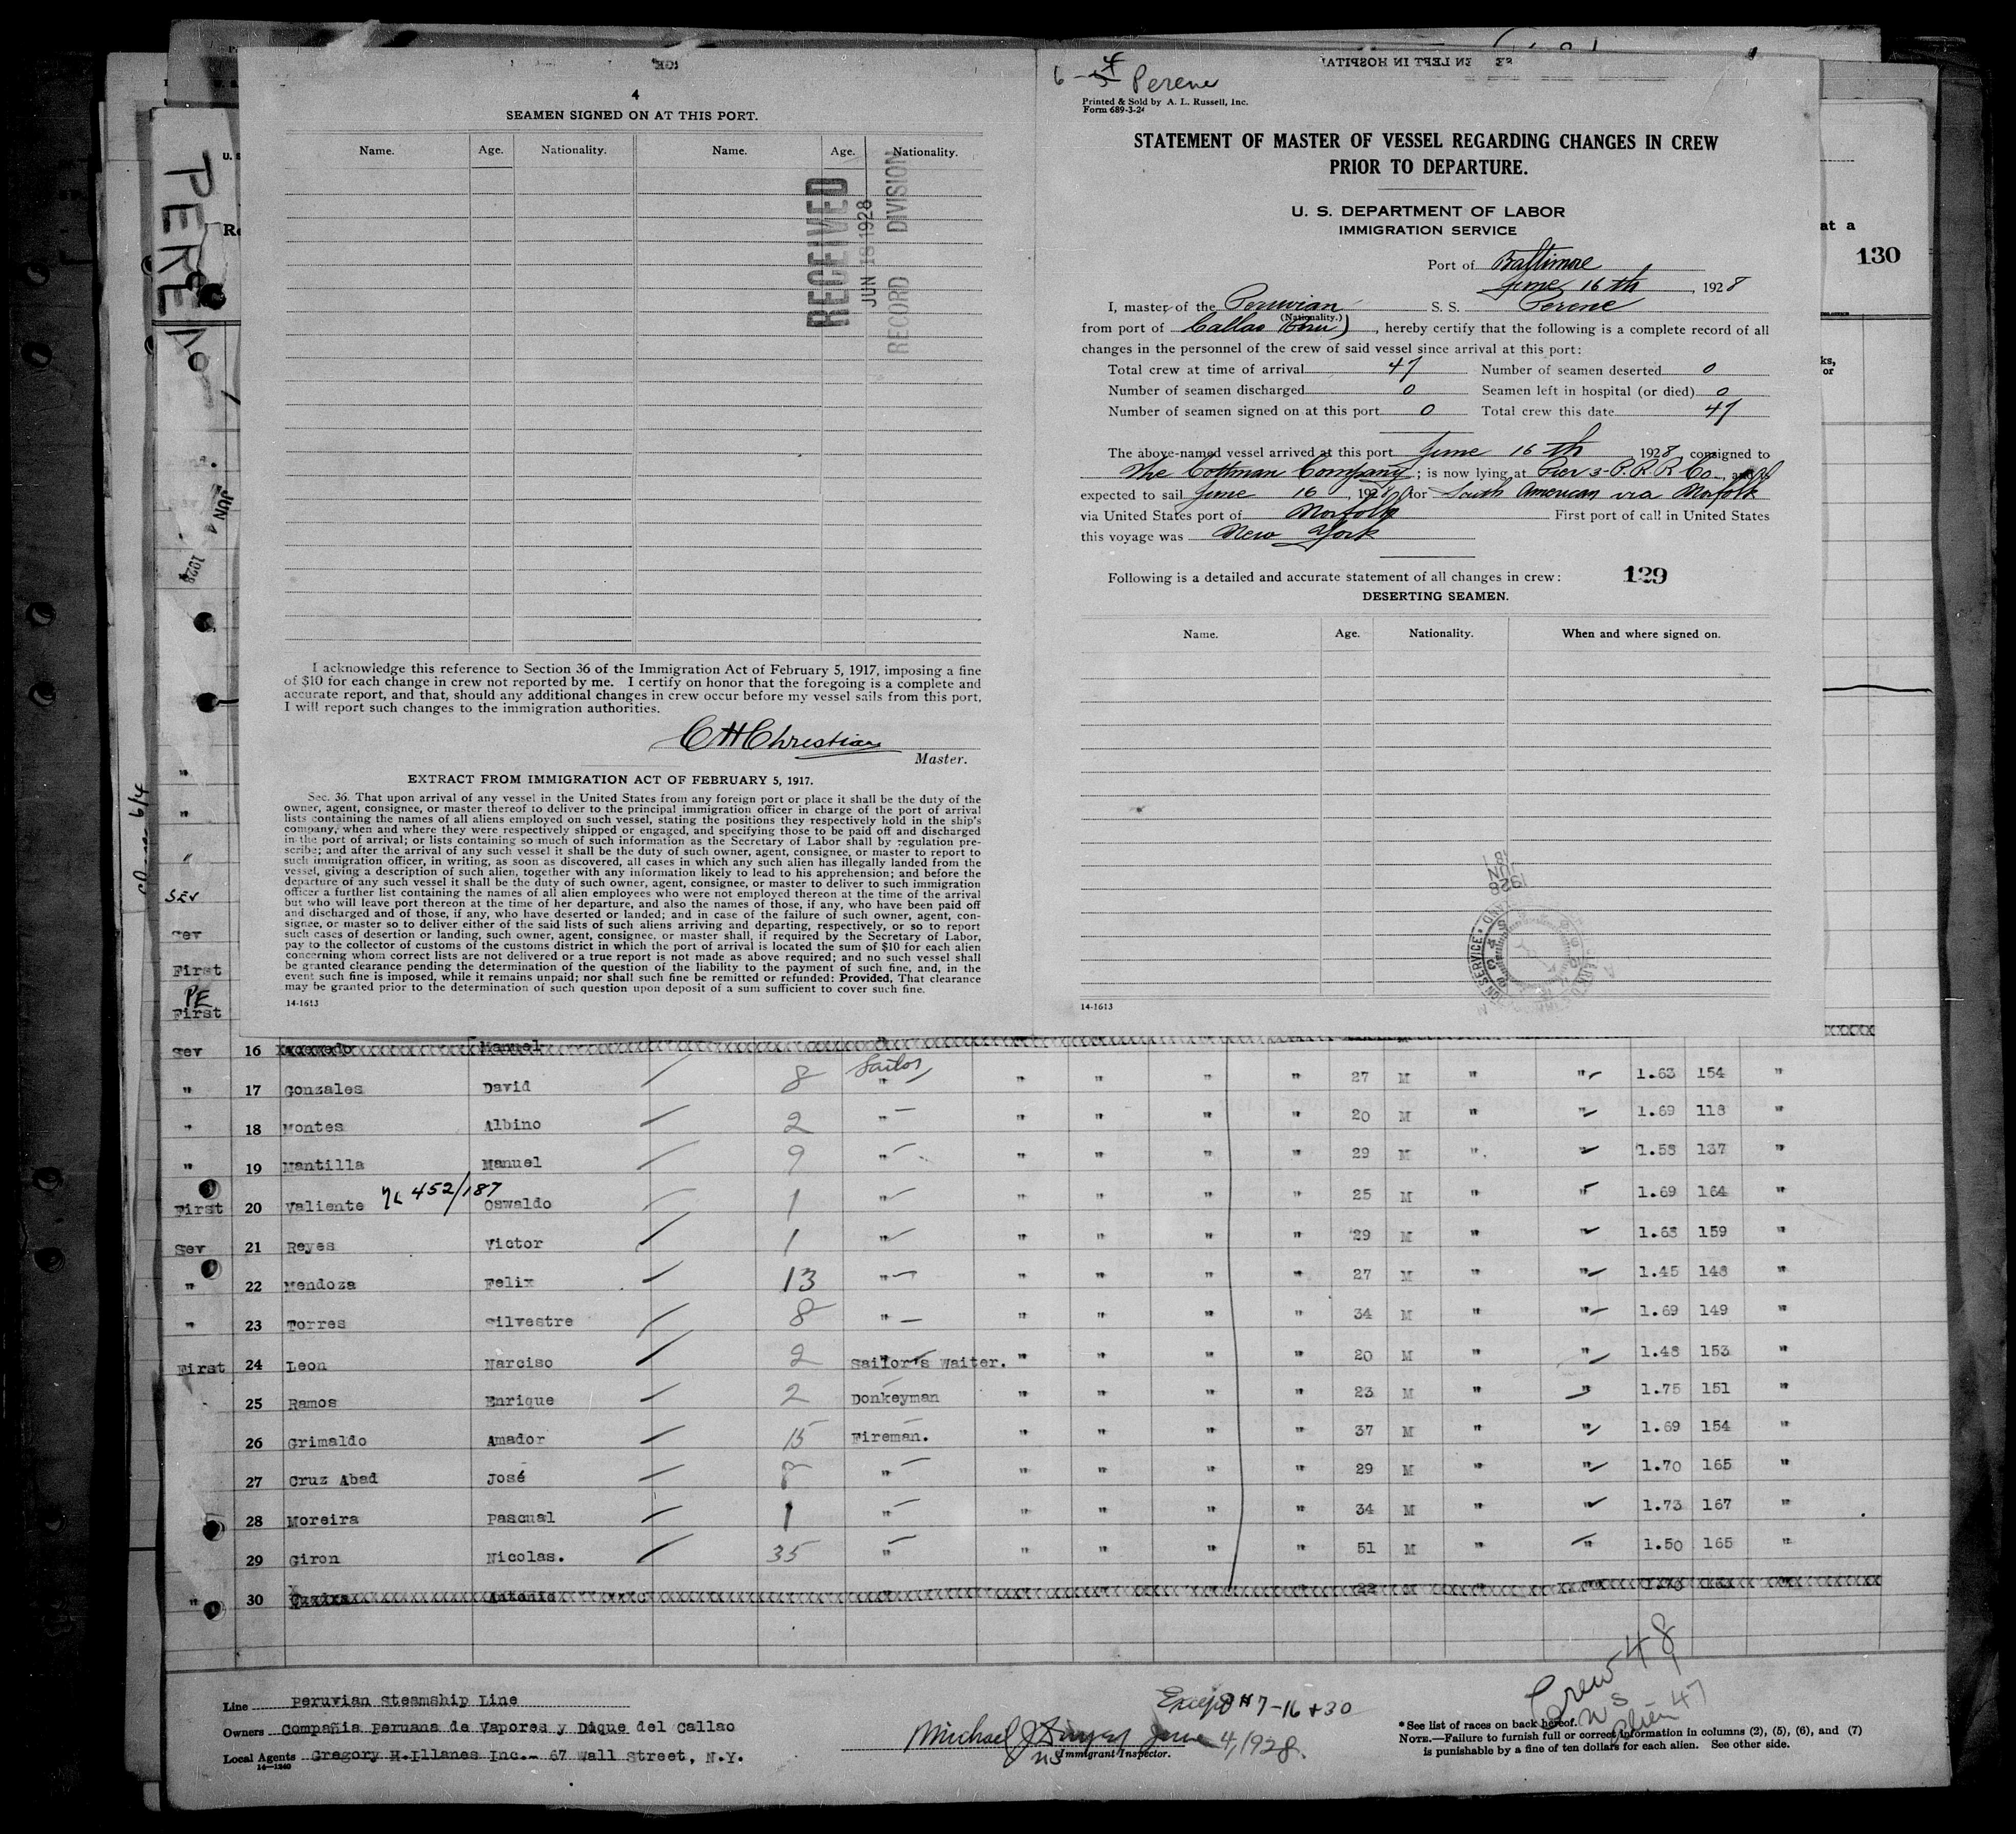 4
SEAMEN SIGNED ON AT THIS PORT.
Name. Age. Nationality. Name. Age. Nationality.
RECEIVED
JUN 18 1928
RECORD DIVISION
I acknowledge this reference to Section 36 of the Immigration Act of February 5, 1917, imposing a fine
of $10 for each change in crew not reported by me. I certify on honor that the foregoing is a complete and
accurate report, and that, should any additional changes in crew occur before my vessel sails from this port,
I will report such changes to the immigration authorities.
C H Christian
Master.
EXTRACT FROM IMMIGRATION ACT OF FEBRUARY 5, 1917.
Sec. 36. That upon arrival of any vessel in the United States from any foreign port or place it shall be the duty of the
owner, agent, consignee, or master thereof to deliver to the principal immigration officer in charge of the port of arrival
lists containing the names of all aliens employed on such vessel, stating the positions they respectively hold in the ship's
company, when and where they were respectively shipped or engaged, and specifying those to be paid off and discharged
in the port of arrival; or lists containing so much of such information as the Secretary of Labor shall by regulation pre-
scribe; and after the arrival of any such vessel it shall be the duty of such owner, agent, consignee, or master to report to
such immigration officer, in writing, as soon as discovered, all cases in which any such alien has illegally landed from the
vessel, giving a description of such alien, together with any information likely to lead to his apprehension; and before the
departure of any such vessel it shall be the duty of such owner, agent, consignee, or master to deliver to such immigration
officer a further list containing the names of all alien employees who were not employed thereon at the time of the arrival
but who will leave port thereon at the time of her departure, and also the names of those, if any, who have been paid off
and discharged and of those, if any, who have deserted or landed; and in case of the failure of such owner, agent, con-
signee, or master so to deliver either of the said lists of such aliens arriving and departing, respectively, or so to report
such cases of desertion or landing, such owner, agent, consignee, or master shall, if required by the Secretary of Labor,
pay to the collector of customs of the customs district in which the port of arrival is located the sum of $10 for each alien
concerning whom correct lists are not delivered or a true report is not made as above required; and no such vessel shall
be granted clearance pending the determination of the question of the liability to the payment of such fine, and, in the
event such fine is imposed, while it remains unpaid; nor shall such fine be remitted or refunded: Provided, That clearance
may be granted prior to the determination of such question upon deposit of a sum sufficient to cover such fine.
14-1613
Perene
Printed & Sold by A. L. Russell, Inc.
Form 689-3-24
STATEMENT OF MASTER OF VESSEL REGARDING CHANGES IN CREW
PRIOR TO DEPARTURE.
U. S. DEPARTMENT OF LABOR
IMMIGRATION SERVICE
Port of Baltimore
June 16th, 1928
I, master of the Peruvian S. S. Perene
(Nationality.)
from port of Callao (Peru), hereby certify that the following is a complete record of all
changes in the personnel of the crew of said vessel since arrival at this port:
Total crew at time of arrival 47 Number of seamen deserted 0
Number of seamen discharged 0 Seamen left in hospital (or died) 0
Number of seamen signed on at this port 0 Total crew this date 47
The above-named vessel arrived at this port June 16th 1928, consigned to
The Cottman Company; is now lying at Pier 3-P.R.R Co, and is
expected to sail June 16, 1928, for South American via Norfolk
via United States port of Norfolk First port of call in United States
this voyage was New York
Following is a detailed and accurate statement of all changes in crew: 129
DESERTING SEAMEN.
Name. Age. Nationality. When and where signed on.
JUN 18 1928
14-1613
130
at a
ks,
or
PERENE
JUN 4 1928
Sev
Sev
First
PE
First
Sev 16 Manuel
" 17 Gonzales David 8 Sailor " " " " " 27 M " " 1.63 154 "
" 18 Montes Albino 2 " " " " " 20 M " " 1.69 118 "
" 19 Mantilla Manuel 9 " " " " " 29 M " " 1.58 137 "
First 20 Valiente 452/187 Oswaldo 1 " " " " " 25 M " " 1.69 164 "
Sev 21 Reyes Victor 1 " " " " " 29 M " " 1.63 159 "
" 22 Mendoza Felix 13 " " " " " 27 M " " 1.45 148 "
" 23 Torres Silvestre 8 " " " " " 34 M " " 1.69 149 "
First 24 Leon Narciso 2 Sailor's Waiter. " " " " 20 M " " 1.48 153 "
25 Ramos Enrique 2 Donkeyman " " " " 23 M " " 1.75 151 "
26 Grimaldo Amador 15 Fireman. " " " " 37 M " " 1.69 154 "
27 Cruz Abad José 8 " " " " " 29 M " " 1.70 165 "
28 Moreira Pascual 1 " " " " " 34 M " " 1.73 167 "
29 Giron Nicolas. 35 " " " " " 51 M " " 1.50 165 "
" 30 Antonio 22
Crew 48
Alien 47
Line Peruvian Steamship Line
Owners Compañia Peruana de Vapores y Dique del Callao
Local Agents Gregory H.Illanes Inc.- 67 Wall Street, N.Y.
14-1240
Except #7-16+30
Michael J June 4, 1928.
Immigrant Inspector.
*See list of races on back hereof.
NOTE.—Failure to furnish full or correct information in columns (2), (5), (6), and (7)
is punishable by a fine of ten dollars for each alien. See other side.